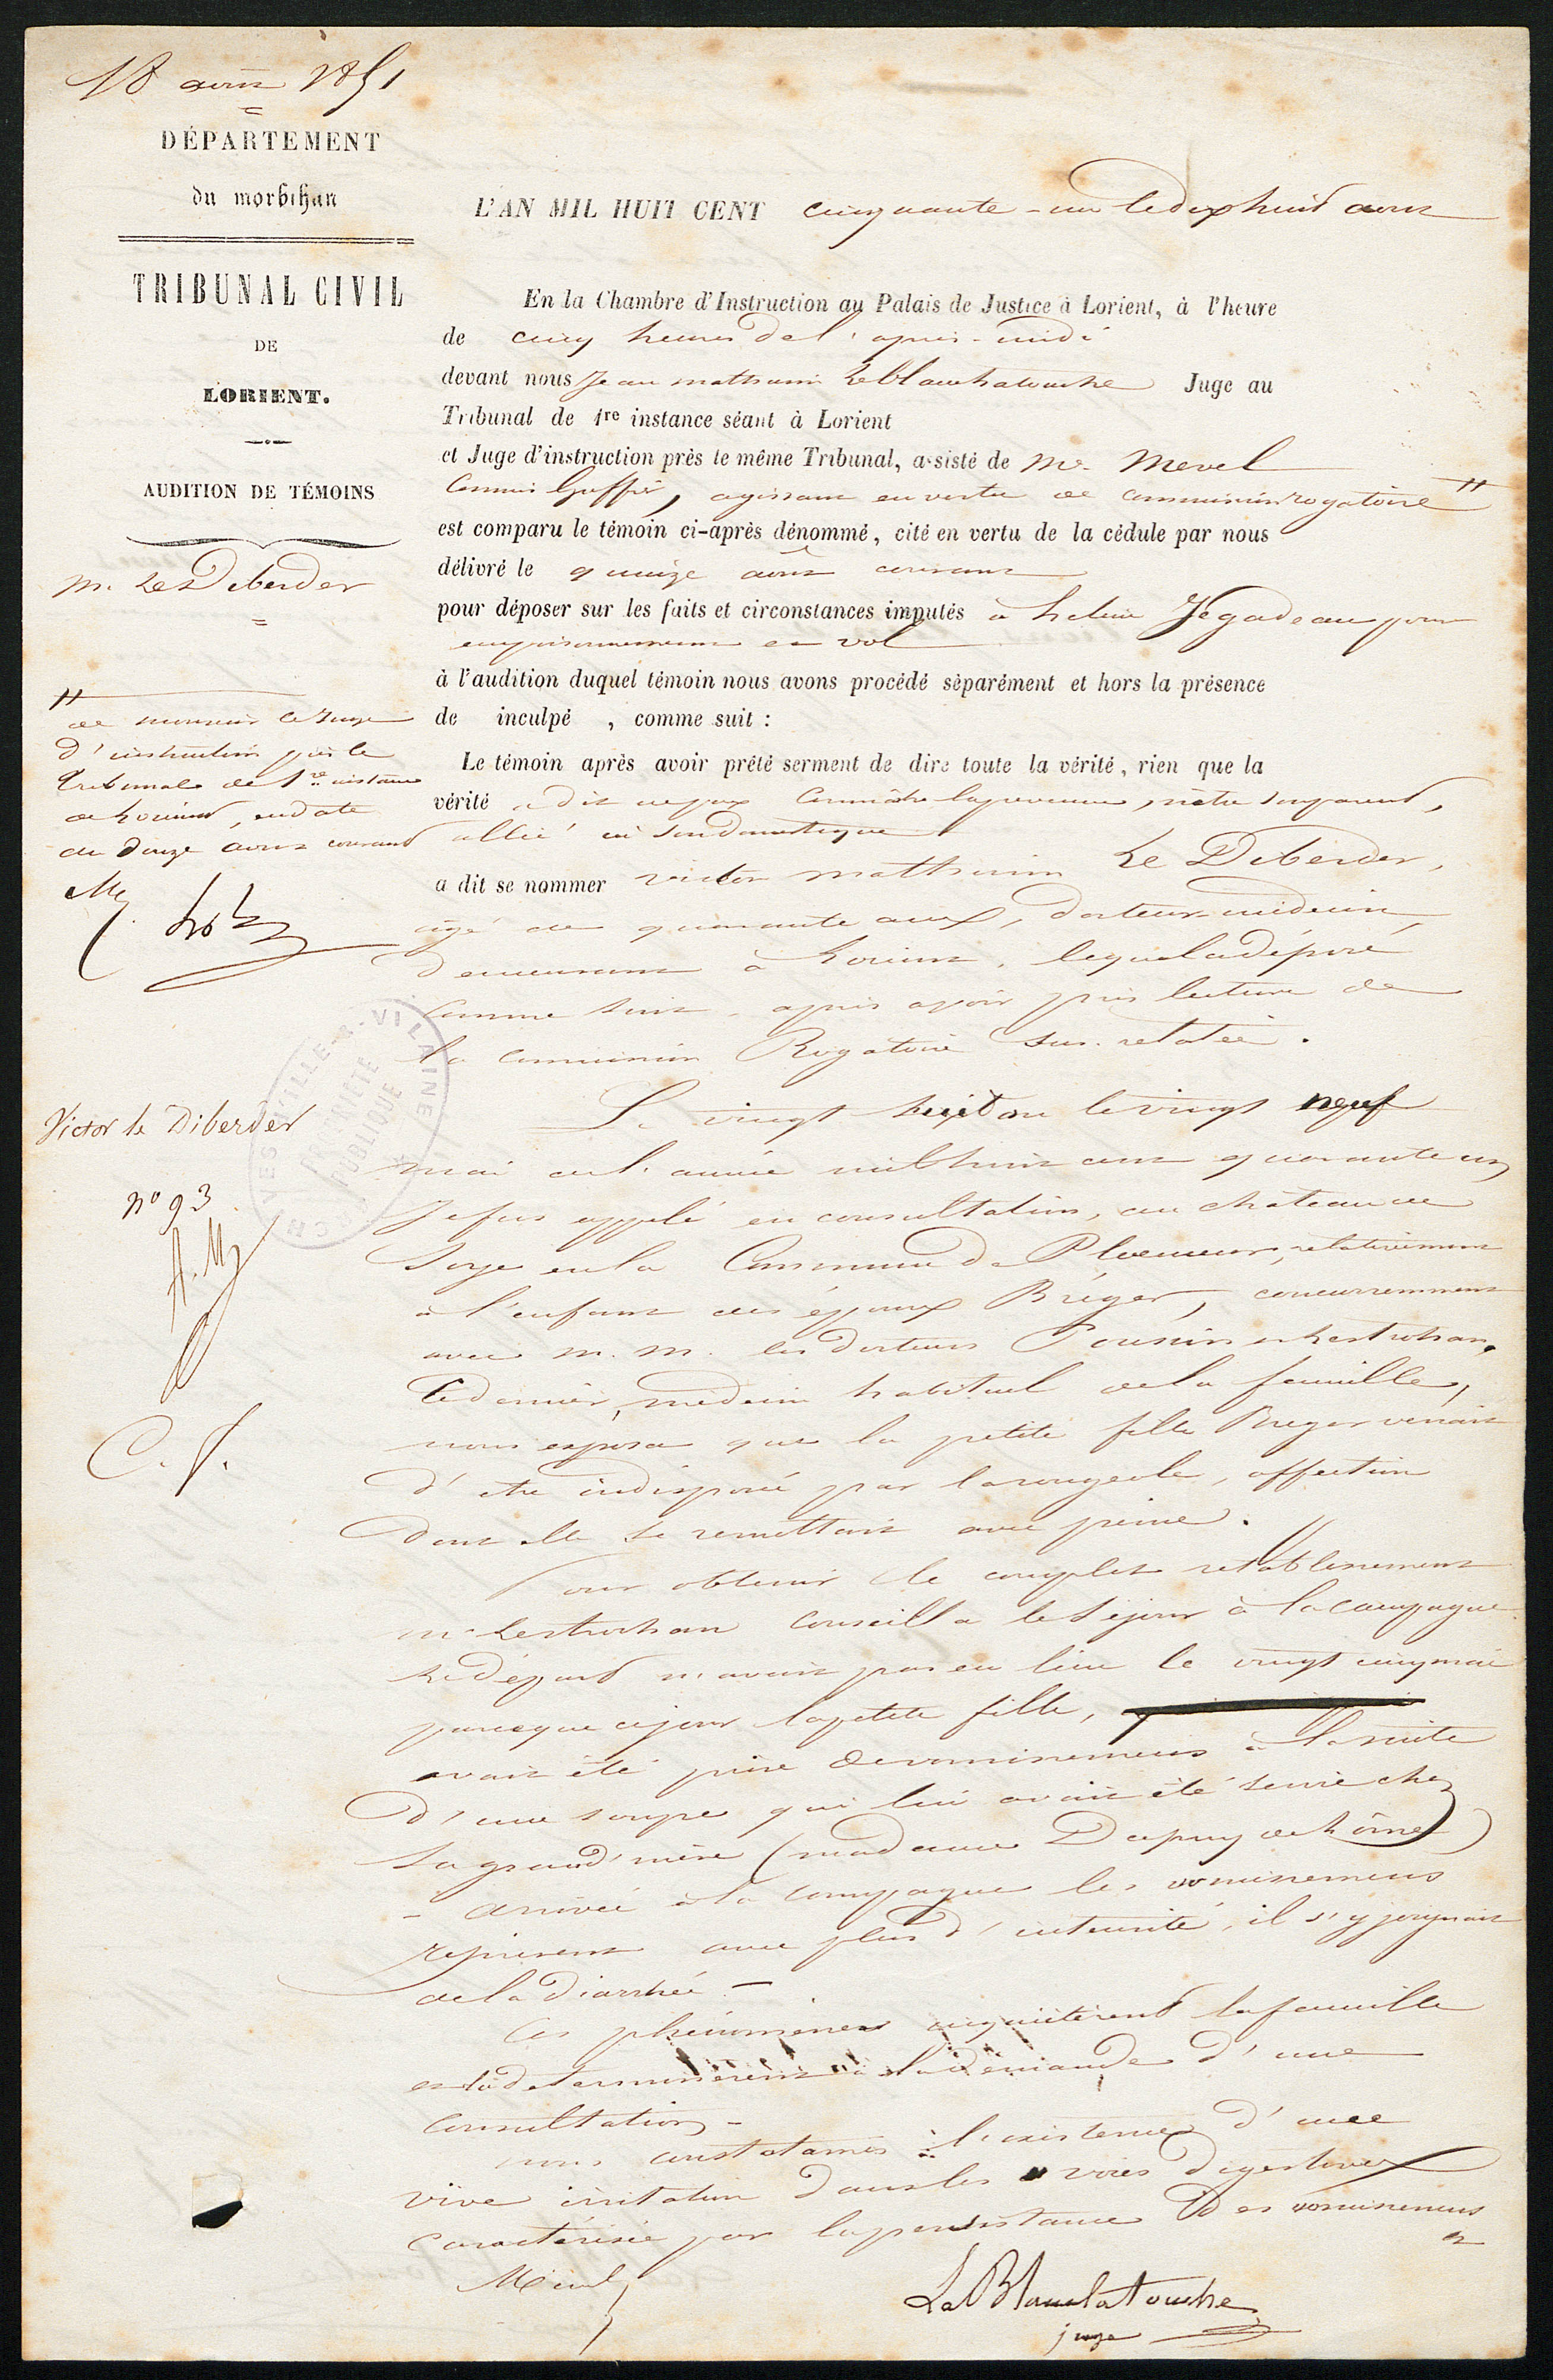 18 août 1851
DÉPARTEMENT
du morbihan
TRIBUNAL CIVIL
DE
LORIENT.
AUDITION DE TÉMOINS
M. Le Diberder
L'AN MIL HUIT CENT cinquante-un le dix huit août
En la Chambre d'Instruction au Palais de Justice à Lorient, à l'heure
de cinq heures de l'après-midi
devant nous Jean mathurin Le Blanchatouche Juge au
Tribunal de 1re instance séant à Lorient
et Juge d'instruction près le même Tribunal, assisté de Me Mevel
Commis Greffier, agissant en vertu de commission rogatoire //
est comparu le témoin ci-après dénommé, cité en vertu de la cédule par nous
délivré le quinze août courant
pour déposer sur les faits et circonstances imputés à hélène Jegadeau pour
empoisonnement et vol
à l'audition duquel témoin nous avons procédé séparément et hors la présence
de inculpé , comme suit :
Le témoin après avoir prêté serment de dire toute la vérité, rien que la
vérité a dit ne pas Connaître la prévenue, n'être son parent,
allié ni son domestique
a dit se nommer victor mathurin Le Diberder,
âgé de quarante ans, docteur médecin,
demeurant à Lorient, lequel a déposé
comme suit, après avoir pris lecture de
la commission Rogatoire sus-relatée.
//
de monsieur le Juge
d'instruction près le
Tribunal de 1re instance
de Lorient, en date
du douze août courant
Victor le Diberder
no 93
C. J.
Le vingt huit ou le vingt neuf
mai de l'année mil huit cent quarante un
Je fus appelé en consultation, au château de
Soye en la Commune de Ploemeur, relativement
à l'enfant des époux Bréger, concurremment
avec m. m. les docteurs Pousin et Lestrohan,
Ce dernier, médecin habituel de la famille,
nous exposa que la petite fille Breger venait
d'être indisposé par la rougeole, affection
dont elle se remettait avec peine.
Pour obtenir le complet rétablissement
mr Lestrohan Conseilla le séjour à la campagne
Le départ n'avait pas eu lieu le vingt cinq mai
parceque ce jour la petite fille,
avait été prise de vomissemens à la suite
d'une soupe qui lui avait été servie chez
sa grand'mère (madame Dupuy de Lôme)
- arrivée à la campagne les vomissemens
reprirent avec plus d'intensité, il s'y joignait
de la diarrhée -
Ces phénomènes inquiétèrent la famille
et la déterminèrent à la demande d'une
consultation -
nous constatames l'existence d'une
vive irritation dans les voies digestives
caractérisée par la persistance des vomissemens
et
Mevel
Le Blanchatouche
juge